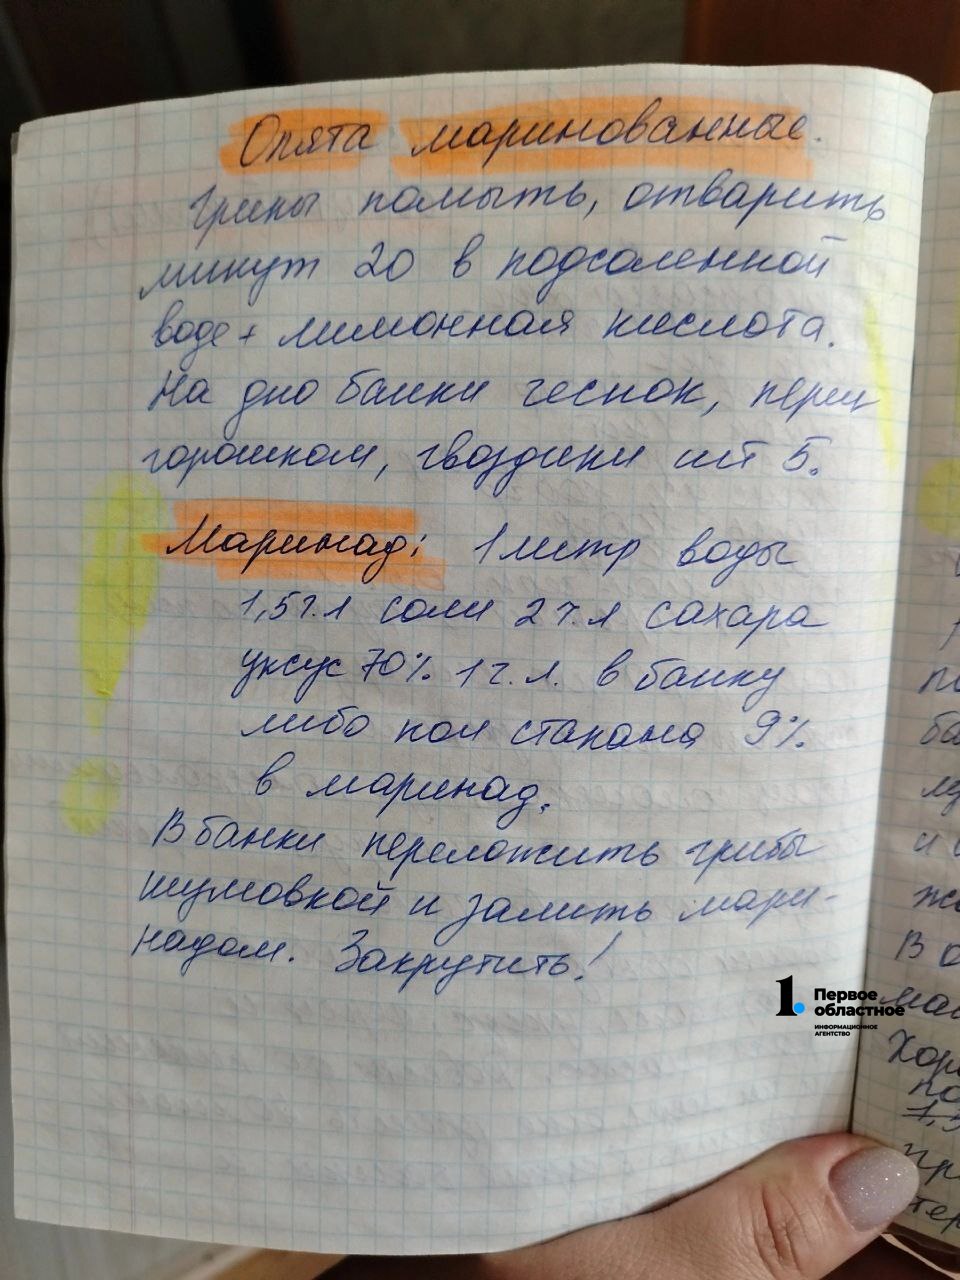 Опята маринованные.
Грибы помыть, отварить
минут 20 в подсоленной
воде + лимонная кислота.
На дно банки чеснок, перец
горошком, гвоздики шт 5.
Маринад: 1 литр воды
1,5 ч.л соли 2 ч.л сахара
уксус 70% 1 ч.л. в банку
либо пол стакана 9%
в маринад.
В банки переложить грибы
шумовкой и залить мари-
надом. Закрутить!
1. Первое
областное
ИНФОРМАЦИОННОЕ
АГЕНТСТВО